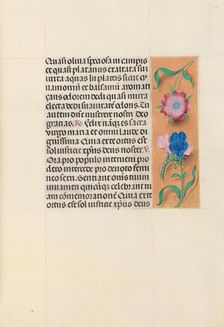 Quasi oliua speciosa in campis
et quasi platanus exaltata sum
iuxta aquas In plateis sicut cy
namomum et balsamū aromati
zans odorem dedi quasi mirra
electa dedi suauitatē odoris. Tu
autem dn̄e miserere nostri Deo
gracias. Felix nāqz es sacra
virgo maria et omni laude di
gnissima Quia ex te ortus est
sol iusticie xp̄us deus noster. V
Ora pro populo interueni pro
clero intercede pro deuoto femi
neo sexu. Sentiāt om̄s tuum
iuuamen quicūqz celebrant tu
am cōmemorationē Quia ex te
ortus est sol iusticie xp̄us deus